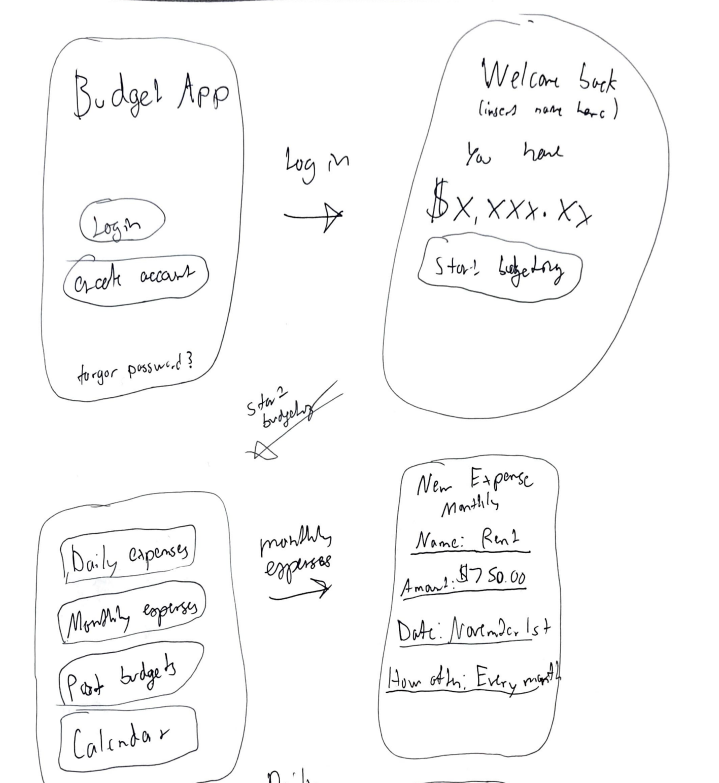 Budget App
Login
Create account
forgor password?
Log in
Welcome back
(insert name here)
You have
$X,XXX.XX
Start budgeting
Start
budgeting
Daily expenses
Monthly expenses
Past budgets
Calendar
monthly
expenses
New Expense
Monthly
Name: Rent
Amount: $750.00
Date: November 1st
How often: Every month